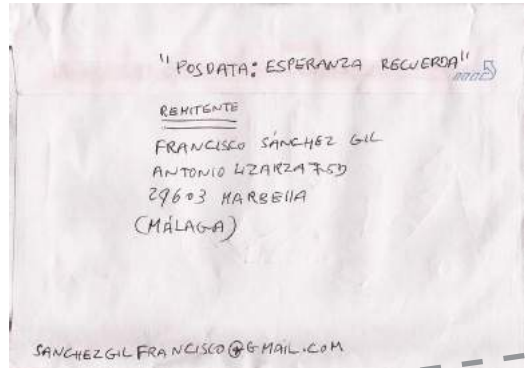 "POSDATA: ESPERANZA RECUERDA"
REMITENTE
FRANCISCO SÁNCHEZ GIL
ANTONIO LIZARZA 75D
29603 MARBEllA
(MÁLAGA)
SANCHEZGILFRANCISCO@GMAIL.COM